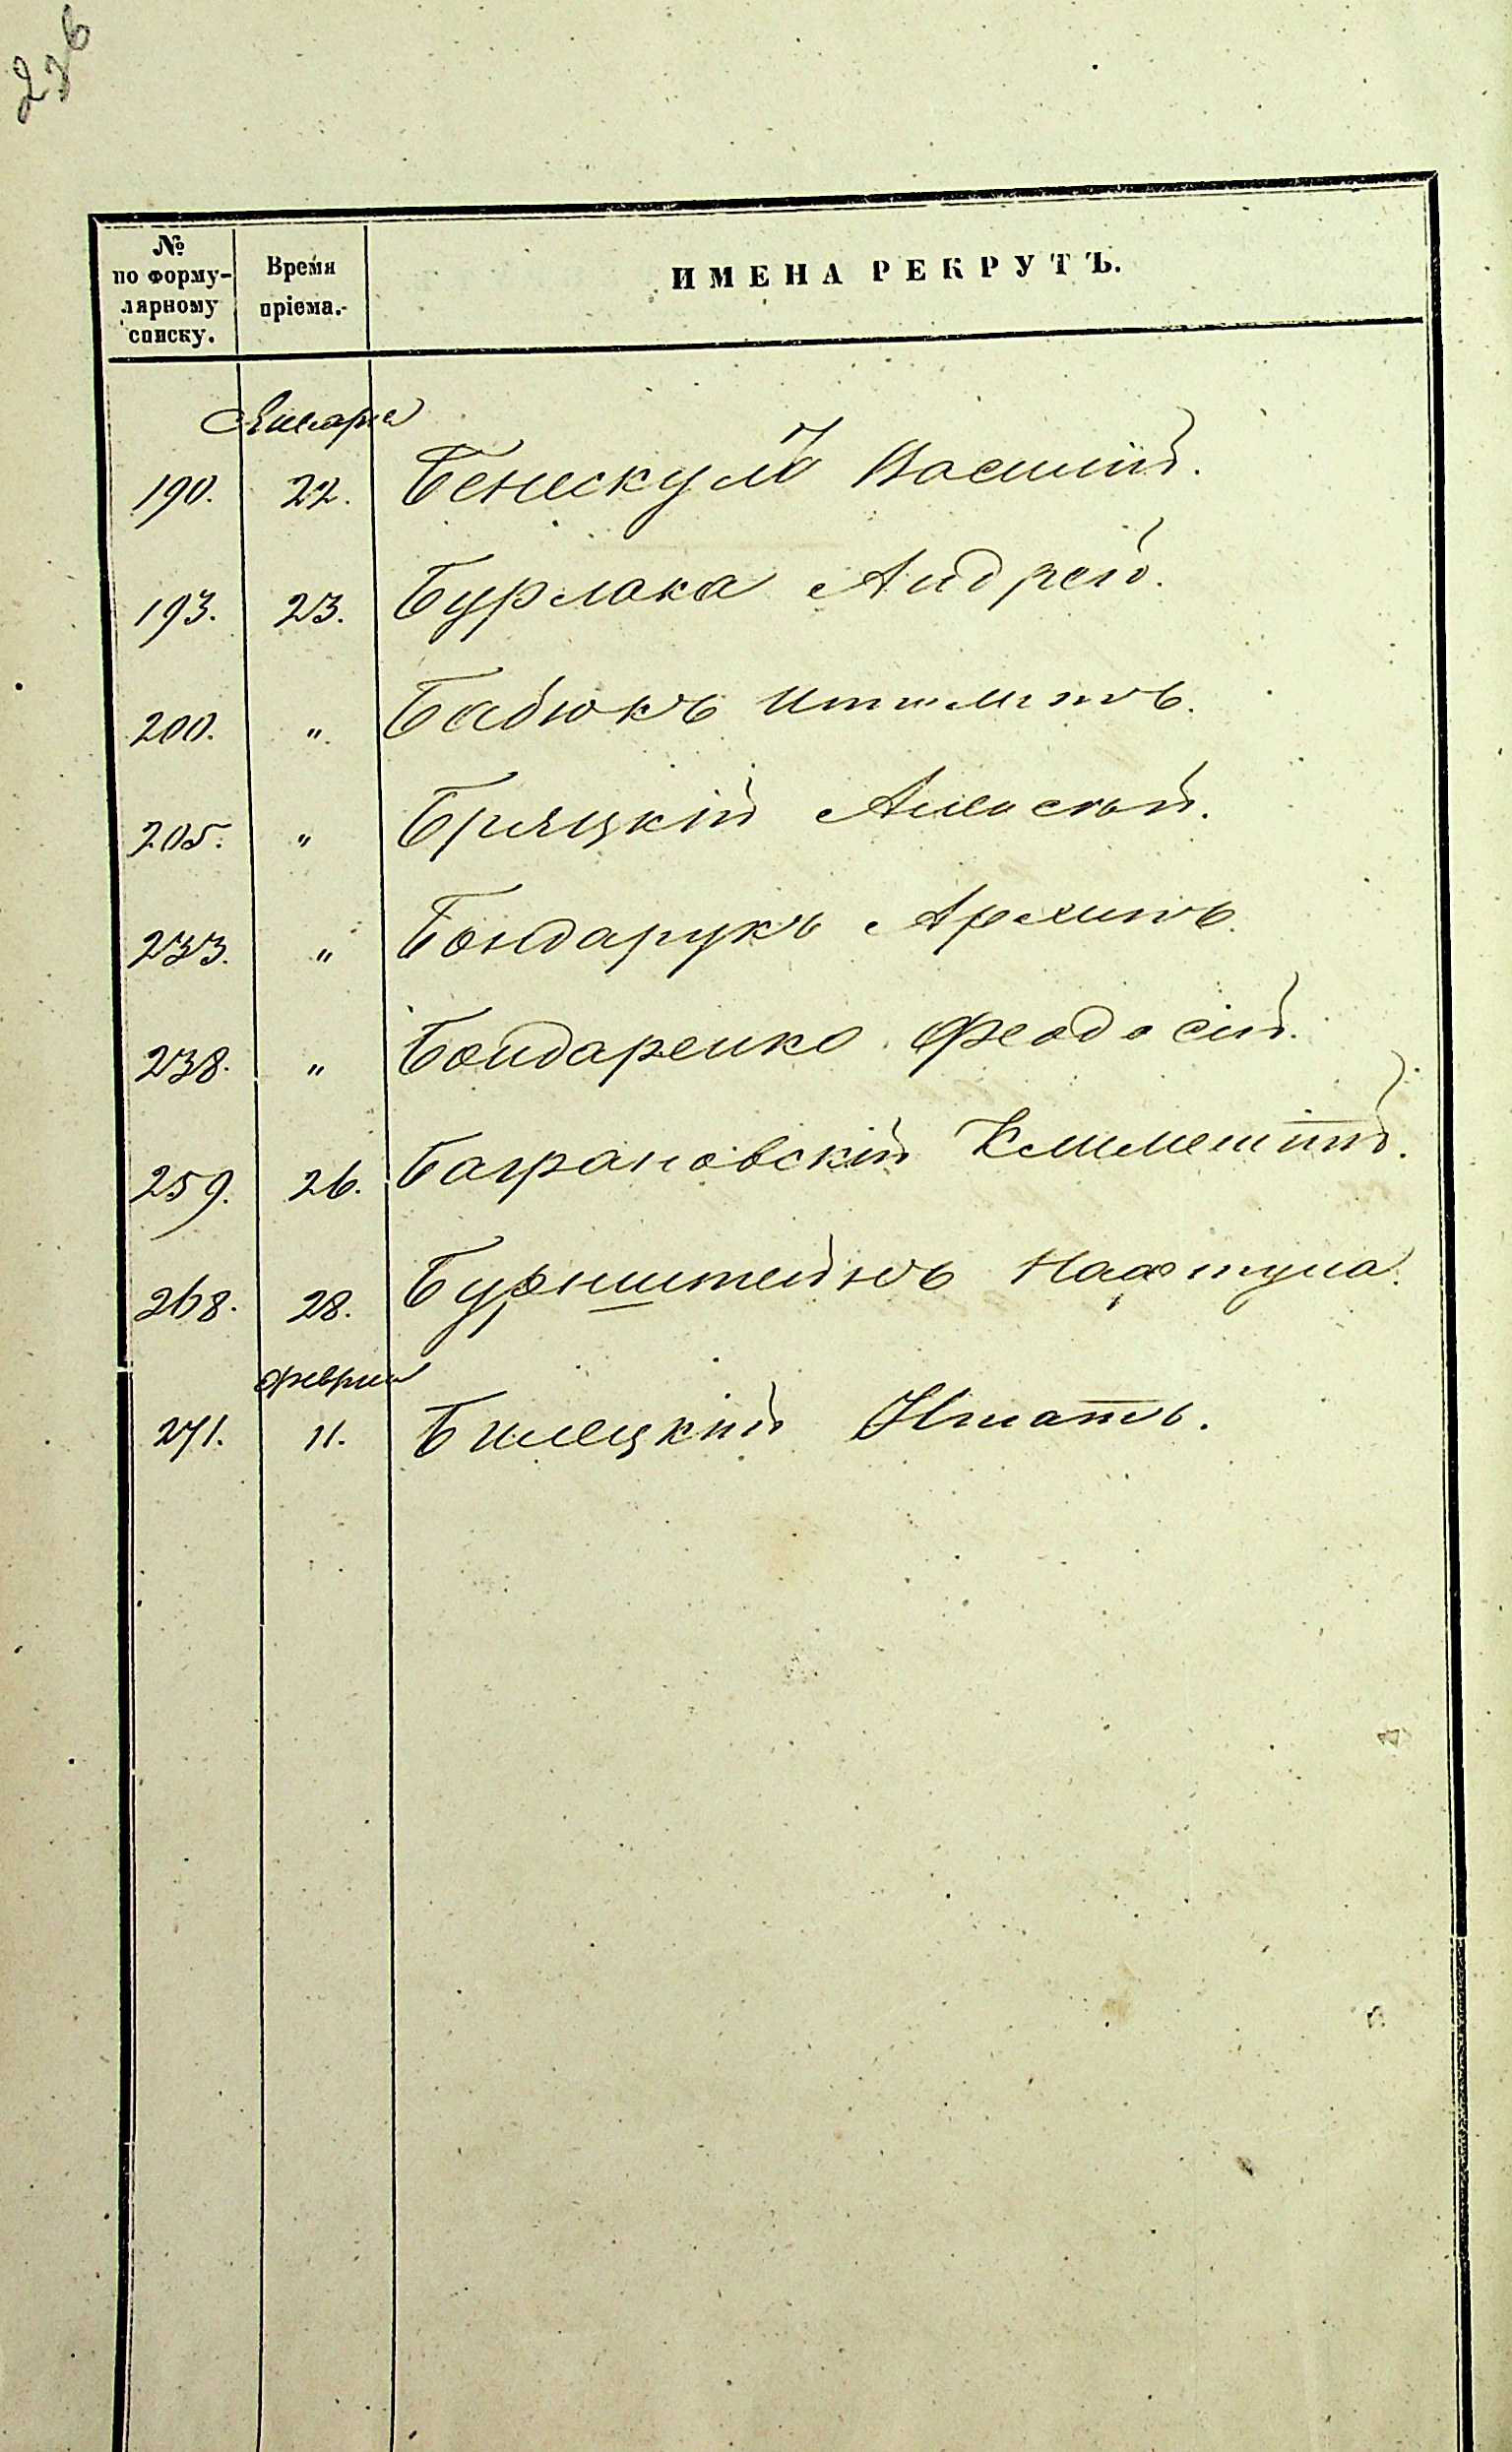 236
№ по форму- лярному списку. Время пріема. ИМЕНА РЕКРУТЪ.
Января
190. 22. Бенескулъ Василій.
193. 23. Бурлака Андрей.
200. " Бабюкъ
205. " Бряцкій Алексѣй.
233. " Бондарукъ Архипъ.
238. " Бондаренко Феодосій.
259. 26. Баграновскій Климентій.
268. 28. Бурнштейнъ Нафтула.
Февраля
271. 11. Билецкій Игнатъ.